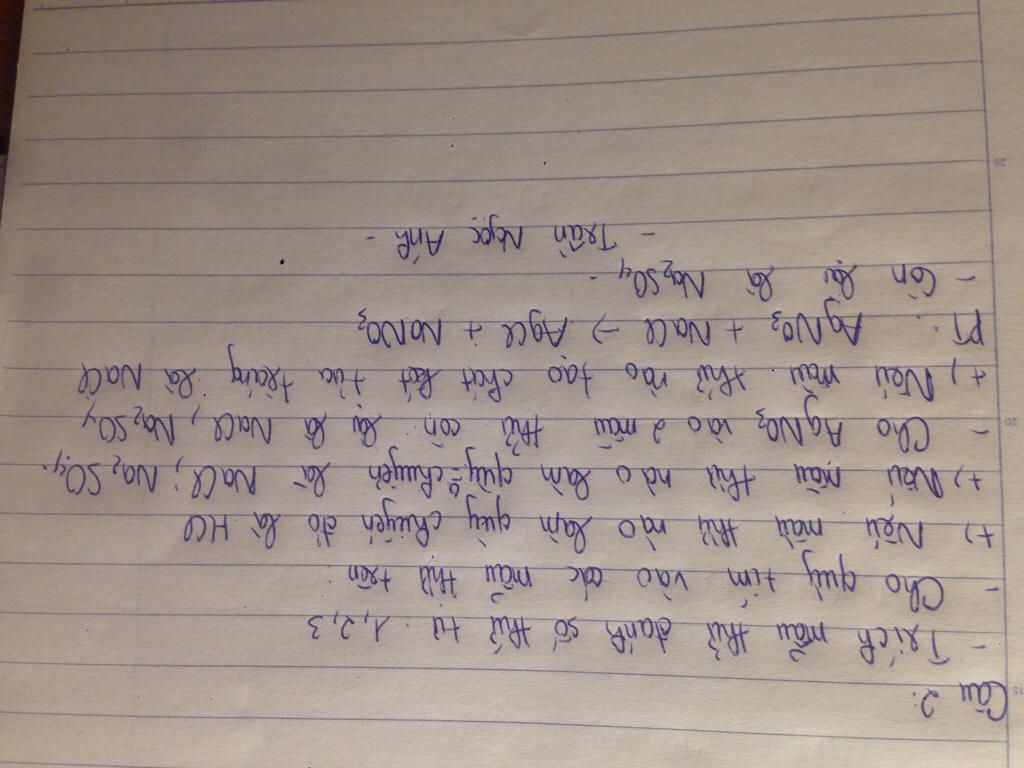 Câu 2:
- Trích mẫu thử đánh số thứ tự 1, 2, 3
- Cho quỳ tím vào các mẫu thử trên:
+) Nếu mẫu thử nào làm quỳ chuyển đỏ là HCl
+) Nếu mẫu thử nào làm quỳ ko chuyển là NaCl, Na2SO4.
- Cho AgNO3 vào 2 mẫu thử còn lại là NaCl, Na2SO4
+) Nếu mẫu thử nào tạo chất kết tủa trắng là NaCl
PT: AgNO3 + NaCl → AgCl + NaNO3
- Còn lại là Na2SO4.
- Trần Ngọc Ánh -
15
20
25